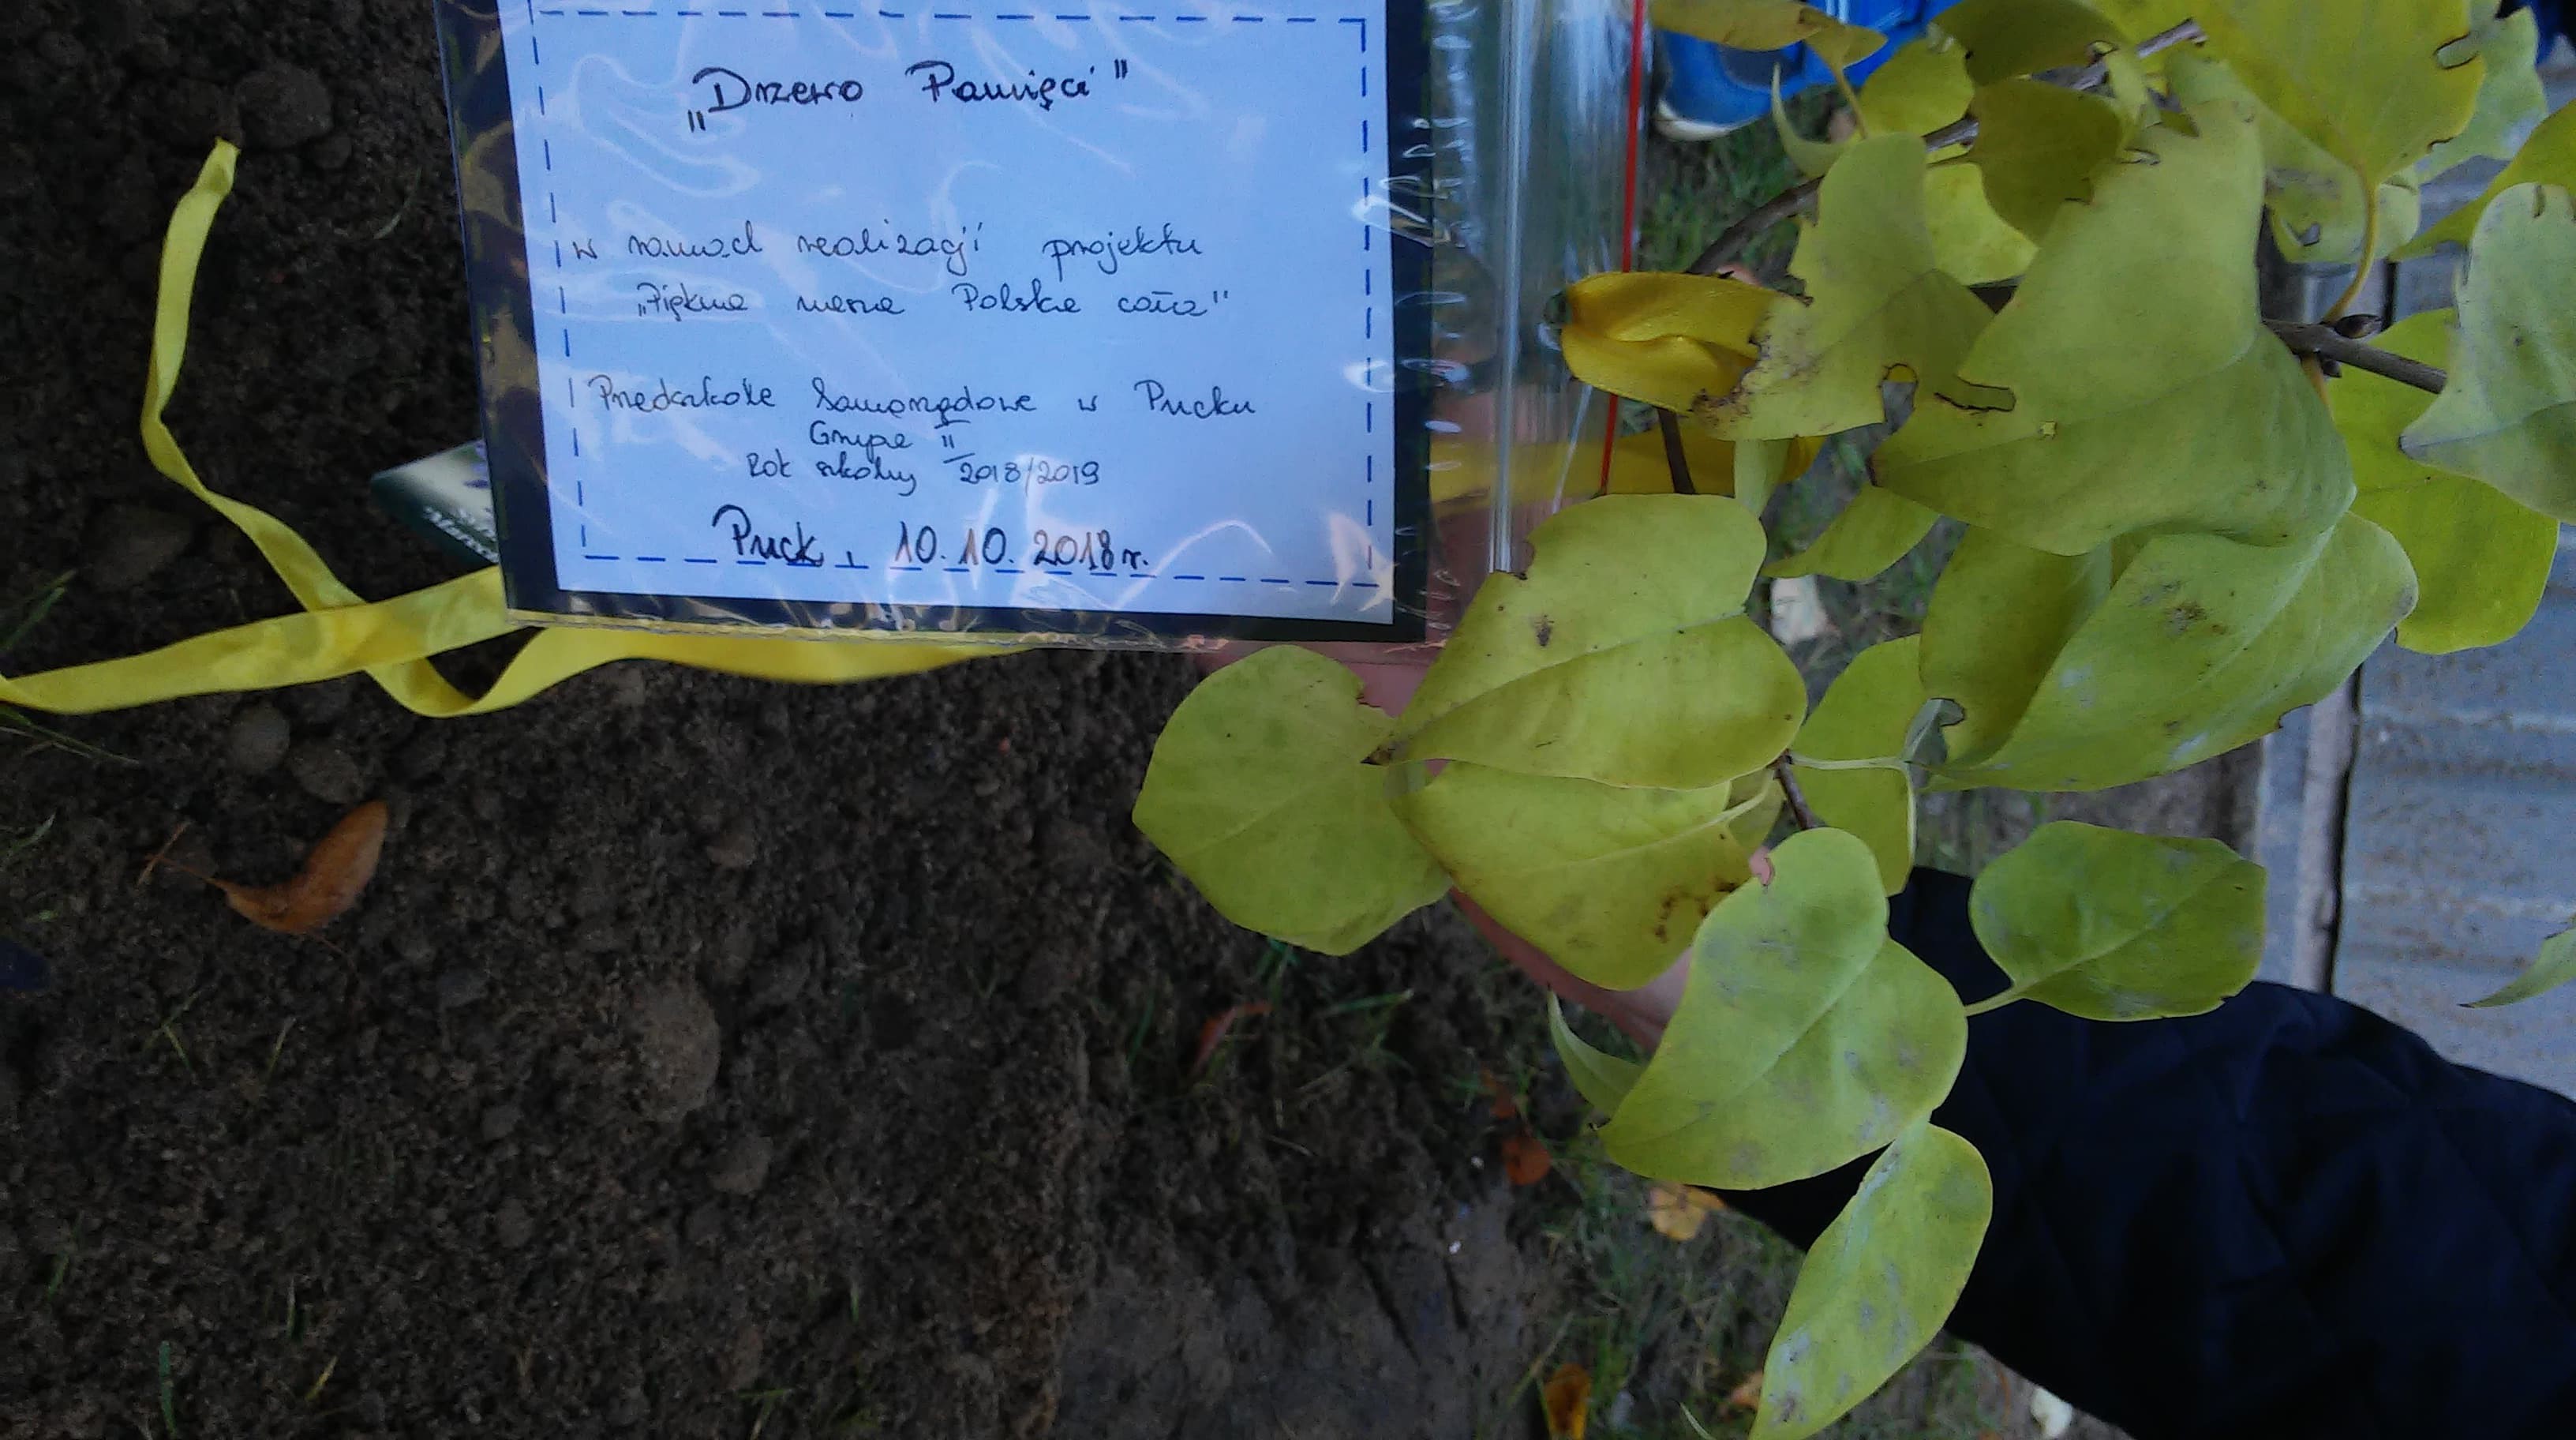 „Drzewo Pamięci"
w ramach realizacji projektu
„Piękna nasza Polska cała"
Przedszkole Samorządowe w Pucku
Grupa II
Rok szkolny 2018/2019
Puck, 10.10.2018r.